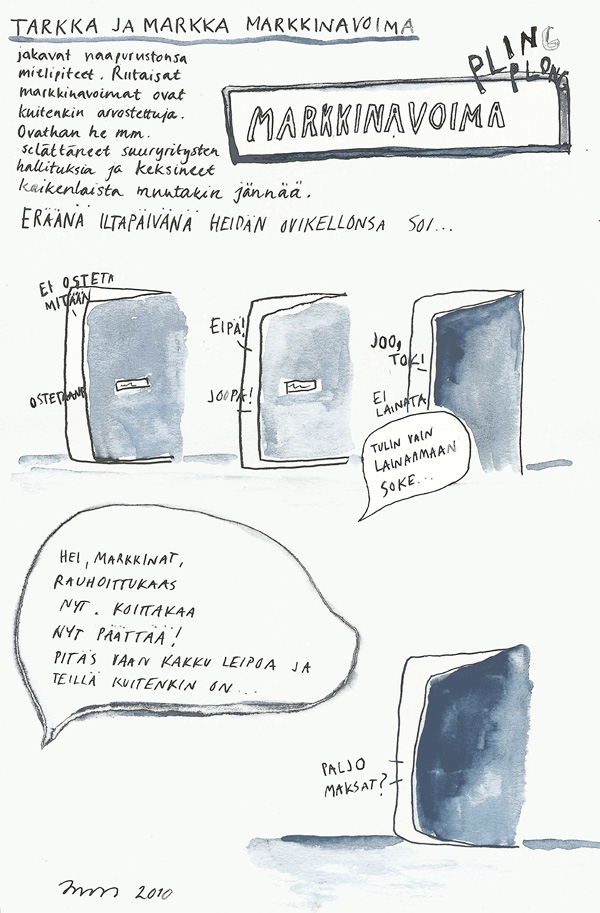 TARKKA JA MARKKA MARKKINAVOIMA
jakavat naapurustonsa
mielipiteet. Riitaisat
markkinavoimat ovat
kuitenkin arvostettuja.
Ovathan he mm.
selättäneet suuryritysten
hallituksia ja keksineet
kaikenlaista muutakin jännää.
PLING
PLONG
MARKKINAVOIMA
ERÄÄNÄ ILTAPÄIVÄNÄ HEIDÄN OVIKELLONSA SOI...
EI OSTETA
MITÄÄN
OSTETAANPA
EIPÄ!
JOOPA!
JOO,
TOKI
EI
LAINATA
TULIN VAIN
LAINAAMAAN
SOKE...
HEI, MARKKINAT,
RAUHOITTUKAAS
NYT. KOITTAKAA
NYT PÄÄTTÄÄ!
PITÄS VAAN KAKKU LEIPOA JA
TEILLÄ KUITENKIN ON...
PALJO
MAKSAT?
2010